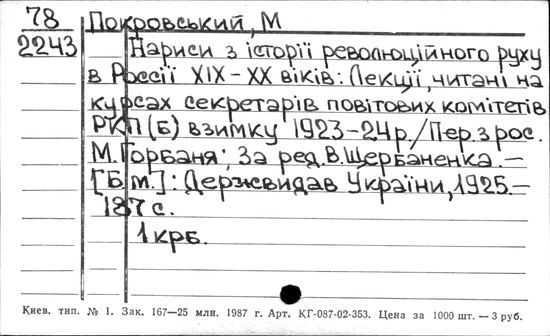 78
2243
Покровський, М
Нариси з історії революційного руху
в Россії XIX-XX віків: Лекції, читані на
курсах секретарів повітових комітетів
РКП(Б) взимку 1923-24 р./Пер. з рос.
М. Горбаня; За ред. В. Щербаненка.—
[Б.м.]: Держвидав України, 1925.—
187 с.
1 крб.
Киев. тип. № 1. Зак. 167—25 млн. 1987 г. Арт. КГ-087-02-353. Цена за 1000 шт. — 3 руб.